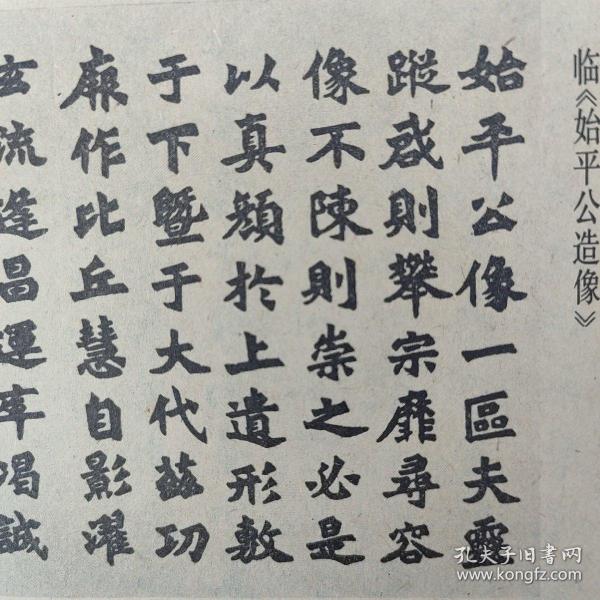 临《始平公造像》
始平公像一區夫靈
蹤啓則攀宗靡尋容
像不陳則崇之必是
以真顏於上遺形敷
于下暨于大代茲功
厥作比丘慧自影濯
玄流逢昌運率渴誠
孔夫子旧书网
www.kongfz.com